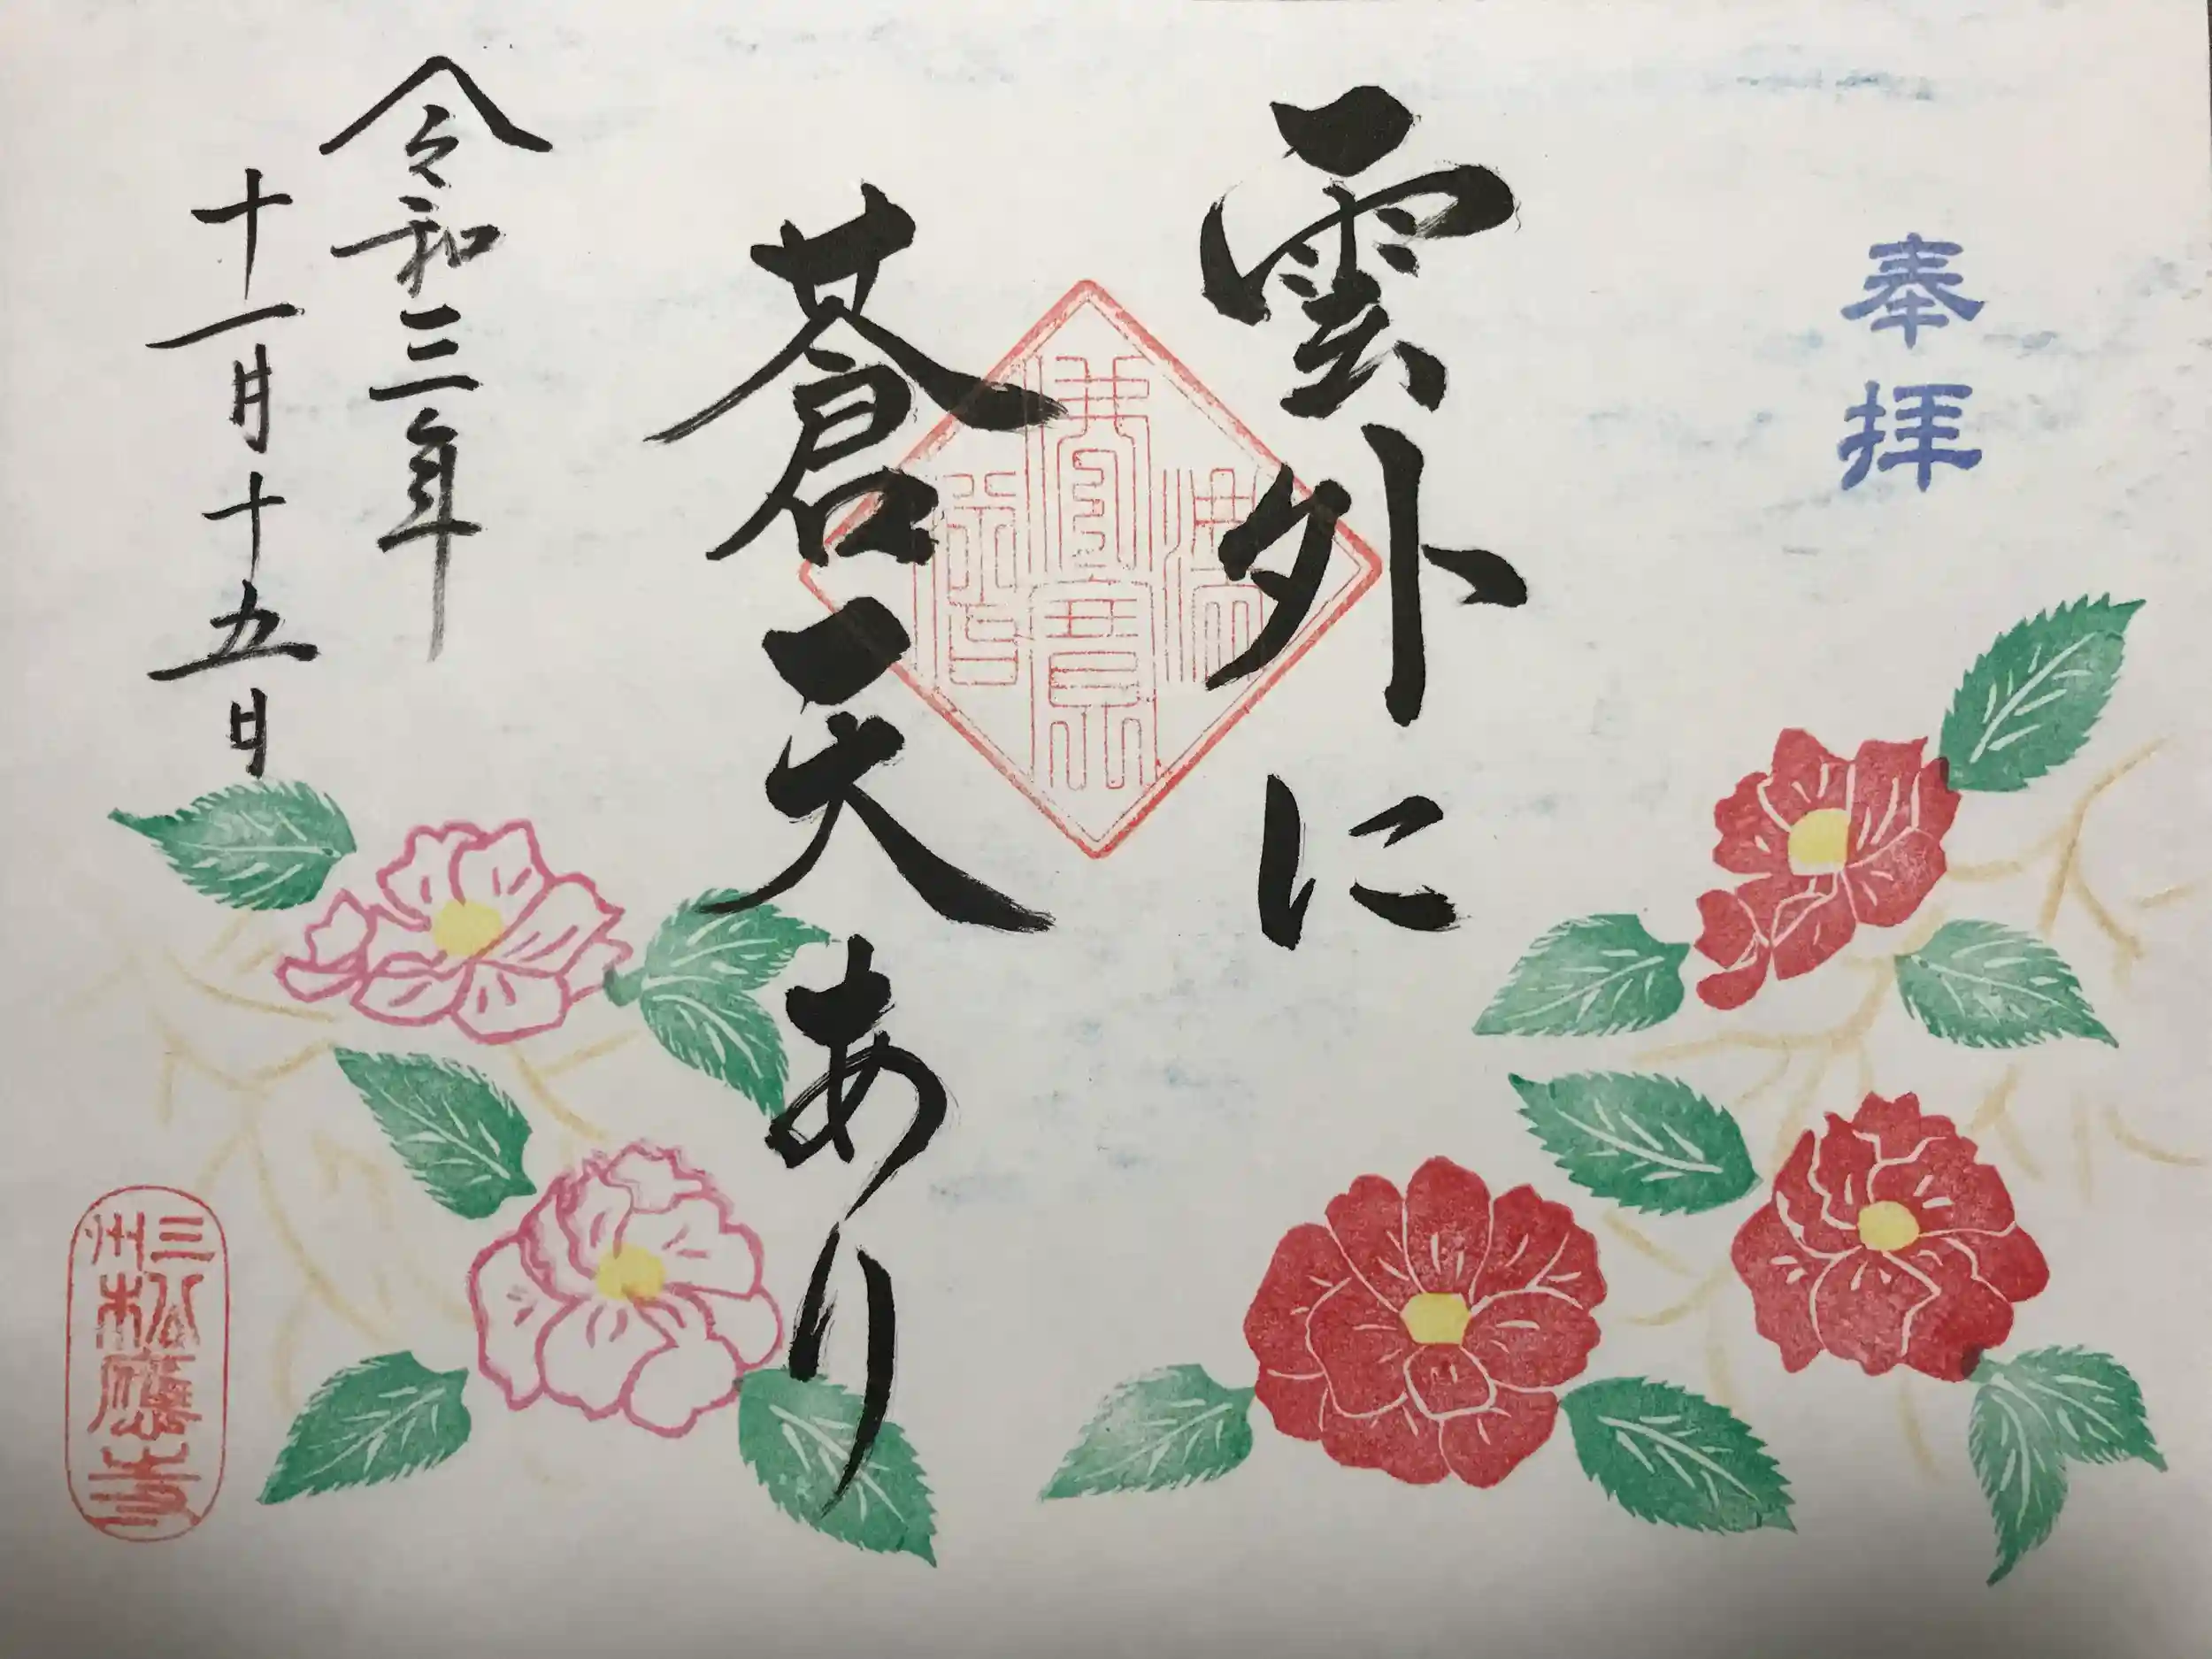 奉拝
雲外に
蒼天あり
令和三年
十一月十五日
三州
松應寺